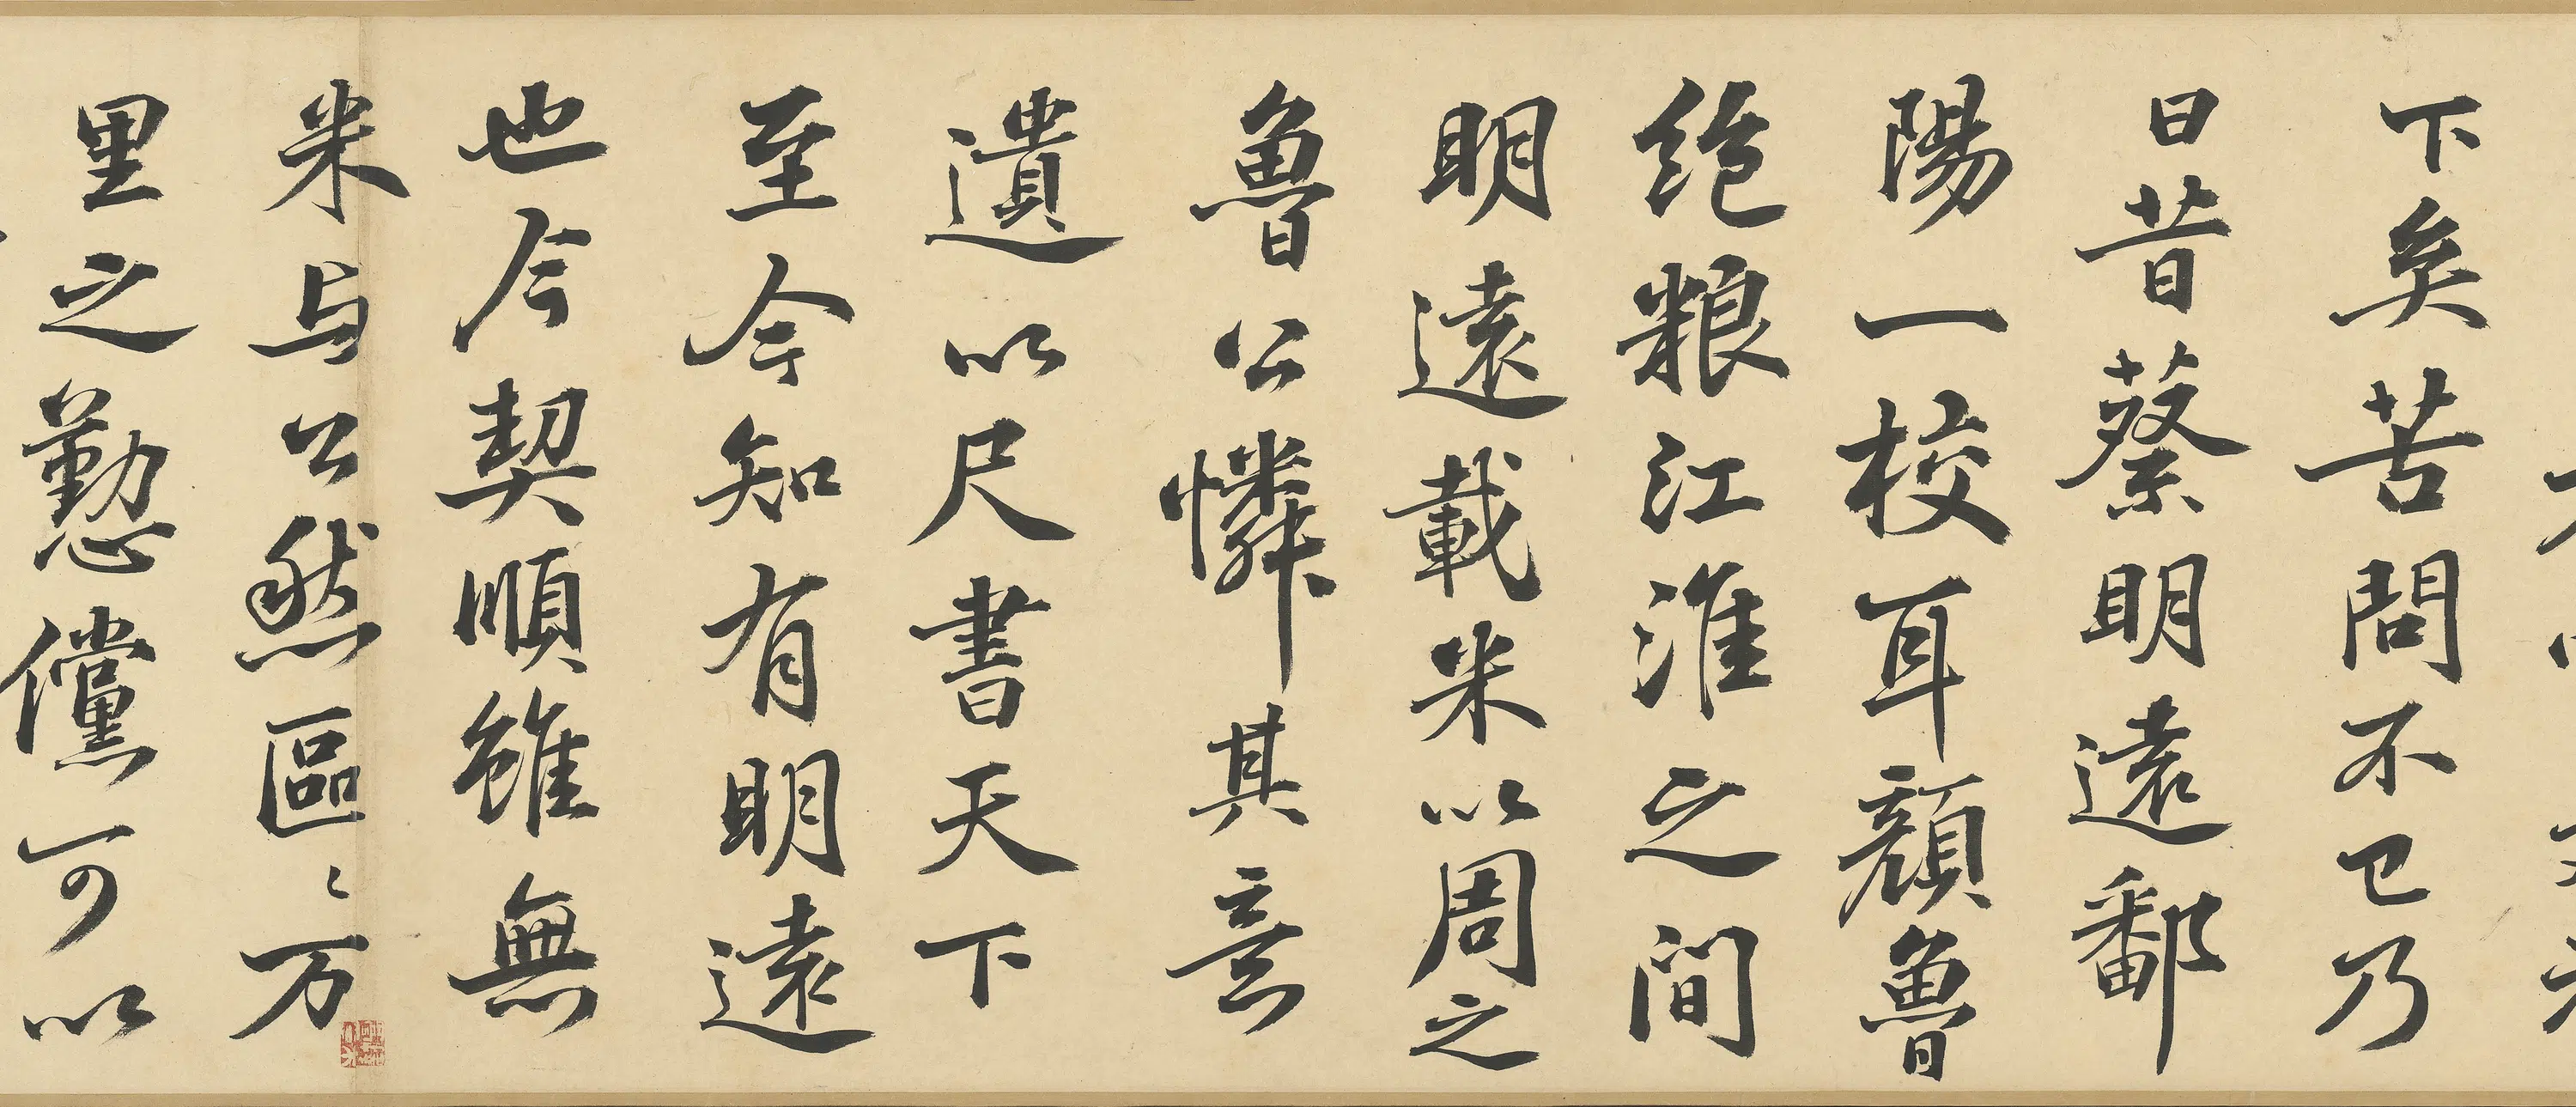 下矣苦問不已乃
曰昔蔡明遠鄱
陽一校耳顏魯
絶粮江淮之間
明遠載米以周之
魯公憐其意
遺以尺書天下
至今知有明遠
也今契順雖無
米与公然區〻万
里之懃儻可以